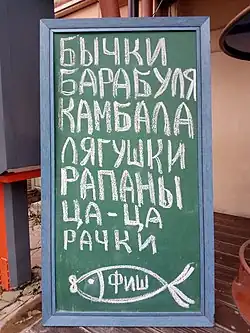 БЫЧКИ
БАРАБУЛЯ
КАМБАЛА
ЛЯГУШКИ
РАПАНЫ
ЦА-ЦА
РАЧКИ
ФИШ